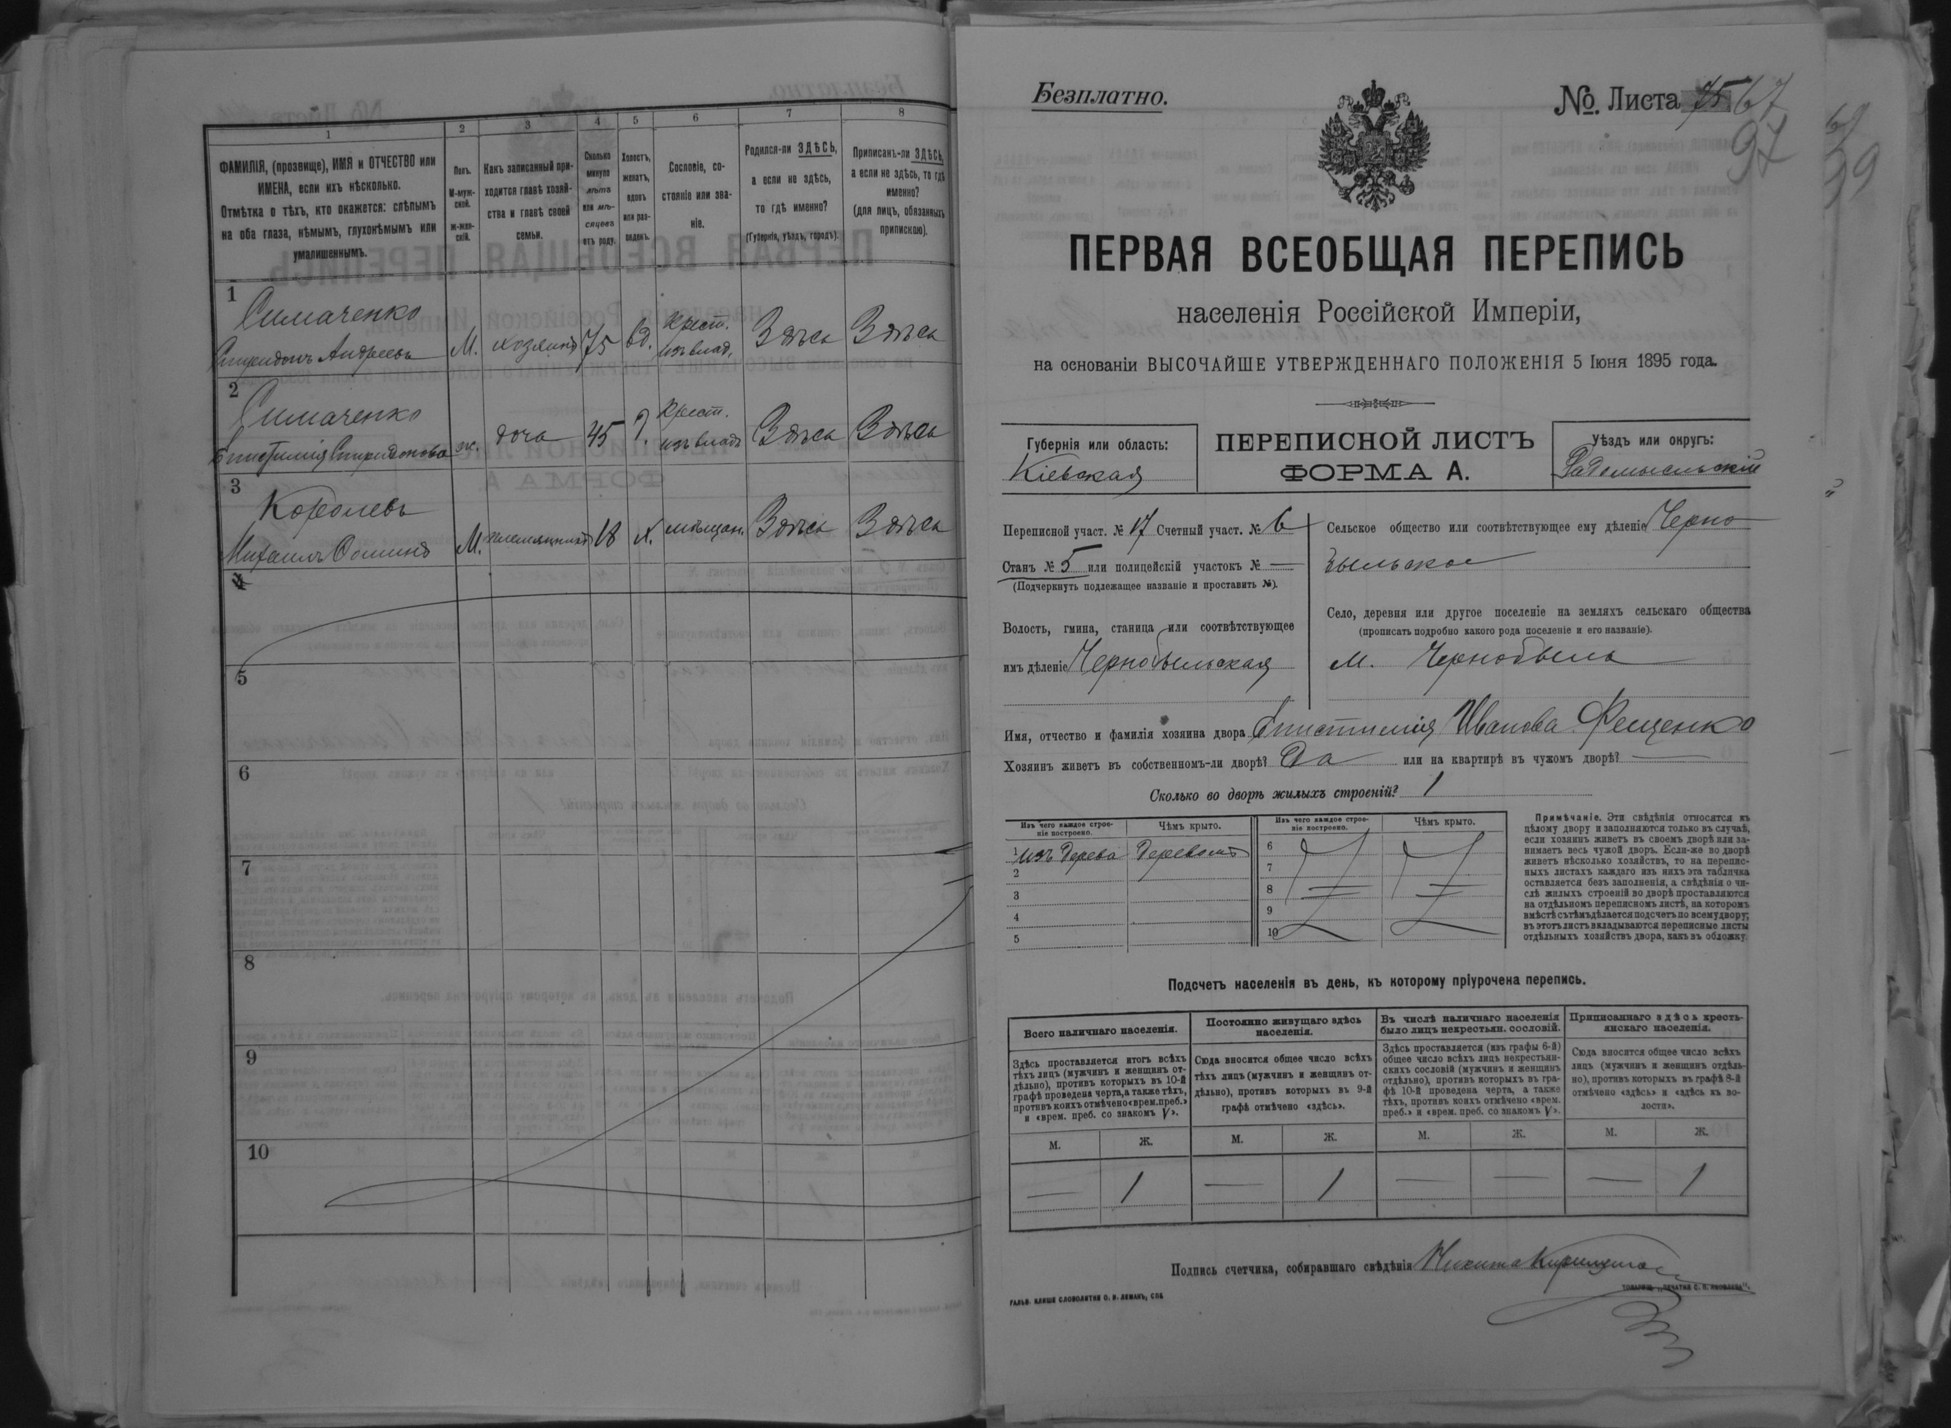 1
2
3
4
5
6
7
8
ФАМИЛІЯ, (прозвище), ИМЯ и ОТЧЕСТВО или
ИМЕНА, если ихъ нѣсколько.
Отмѣтка о тѣхъ, кто окажется: слѣпымъ
на оба глаза, нѣмымъ, глухонѣмымъ или
умалишеннымъ.
Полъ.
М-муж-
ской.
Ж-жен-
скій.
Какъ записанный при-
ходится главѣ хозяй-
ства и главѣ своей
семьи.
Сколько
минуло
лѣтъ
или мѣ-
сяцевъ
отъ роду.
Холостъ,
женатъ,
вдовъ
или раз-
веденъ.
Сословіе, со-
стояніе или зва-
ніе.
Родился-ли ЗДѢСЬ,
а если не здѣсь,
то гдѣ именно?
(Губернія, уѣздъ, городъ).
Приписанъ-ли ЗДѢСЬ,
а если не здѣсь, то гдѣ
именно?
(для лицъ, обязанныхъ
припискою).
1
Симаченко
Спиридонъ Андреевъ
М.
хозяинъ
75
вд.
Крест.
изъ влад.
Здѣсь
Здѣсь
2
Симаченко
Епистимія Спиридонова
ж.
дочь
45
Крест.
изъ влад.
Здѣсь
Здѣсь
3
Королевъ
Михаилъ
М.
18
х.
мѣщан.
Здѣсь
Здѣсь
4
5
6
7
8
9
10
Безплатно.
№. Листа 75 67
97
69
99
ПЕРВАЯ ВСЕОБЩАЯ ПЕРЕПИСЬ
населенія Россійской Имперіи,
на основаніи ВЫСОЧАЙШЕ УТВЕРЖДЕННАГО ПОЛОЖЕНІЯ 5 Іюня 1895 года.
Губернія или область:
Кіевская
ПЕРЕПИСНОЙ ЛИСТЪ
ФОРМА А.
Уѣздъ или округъ:
Радомысльскій
Переписной участ. № 17 Счетный участ. № 6
Станъ № 5 или полицейскій участокъ № —
(Подчеркнуть подлежащее названіе и проставить №).
Волость, гмина, станица или соотвѣтствующее
имъ дѣленіе Чернобыльская
Сельское общество или соотвѣтствующее ему дѣленіе Черно-
быльское
Село, деревня или другое поселеніе на земляхъ сельскаго общества
(прописать подробно какого рода поселеніе и его названіе).
м. Чернобыль
Имя, отчество и фамилія хозяина двора Епистимія Иванова Фещенко
Хозяинъ живетъ въ собственномъ-ли дворѣ? Да или на квартирѣ въ чужомъ дворѣ? —
Сколько во дворѣ жилыхъ строеній? 1
Изъ чего каждое строе-
ніе построено.
Чѣмъ крыто.
Изъ чего каждое строе-
ніе построено.
Чѣмъ крыто.
1 изъ дерева деревомъ
2
3
4
5
6
7
8
9
10
Примѣчаніе. Эти свѣдѣнія относятся къ
цѣлому двору и заполняются только въ случаѣ,
если хозяинъ живетъ въ своемъ дворѣ или за-
нимаетъ весь чужой дворъ. Если-же во дворѣ
живетъ нѣсколько хозяйствъ, то на перепис-
ныхъ листахъ каждаго изъ нихъ эта табличка
оставляется безъ заполненія, а свѣдѣнія о чи-
слѣ жилыхъ строеній во дворѣ проставляются
на отдѣльномъ переписномъ листѣ, на которомъ
вмѣстѣ съ тѣмъ дѣлается подсчетъ по всему двору;
въ этотъ листъ вкладываются переписные листы
отдѣльныхъ хозяйствъ двора, какъ въ обложку.
Подсчетъ населенія въ день, къ которому пріурочена перепись.
Всего наличнаго населенія.
Постоянно живущаго здѣсь
населенія.
Въ числѣ наличнаго населенія
было лицъ некрестьян. сословій.
Приписаннаго здѣсь кресть-
янскаго населенія.
Здѣсь проставляется итогъ всѣхъ
тѣхъ лицъ (мужчинъ и женщинъ от-
дѣльно), противъ которыхъ въ 10-й
графѣ проведена черта, а также тѣхъ,
противъ коихъ отмѣчено «врем. преб.»
и «врем. преб. со знакомъ V».
Сюда вносится общее число всѣхъ
тѣхъ лицъ (мужчинъ и женщинъ от-
дѣльно), противъ которыхъ въ 9-й
графѣ отмѣчено «здѣсь».
Здѣсь проставляется (изъ графы 6-й)
общее число всѣхъ лицъ некрестьян-
скихъ сословій (мужчинъ и женщинъ
отдѣльно), противъ которыхъ въ гра-
фѣ 10-й проведена черта, а также
тѣхъ, противъ коихъ отмѣчено «врем.
преб.» и «врем. преб. со знакомъ V».
Сюда вносится общее число всѣхъ
лицъ (мужчинъ и женщинъ отдѣль-
но), противъ которыхъ въ графѣ 8-й
отмѣчено «здѣсь» и «здѣсь къ во-
лости».
М. Ж. М. Ж. М. Ж. М. Ж.
— 1 — 1 — — — 1
Подпись счетчика, собиравшаго свѣдѣнія Никита
ГАЛЬВ. КЛИШЕ СЛОВОЛИТНИ О. И. ЛЕМАНЪ, СПБ
ТОВАРИЩ. „ПЕЧАТНЯ С. П. ЯКОВЛЕВА“.